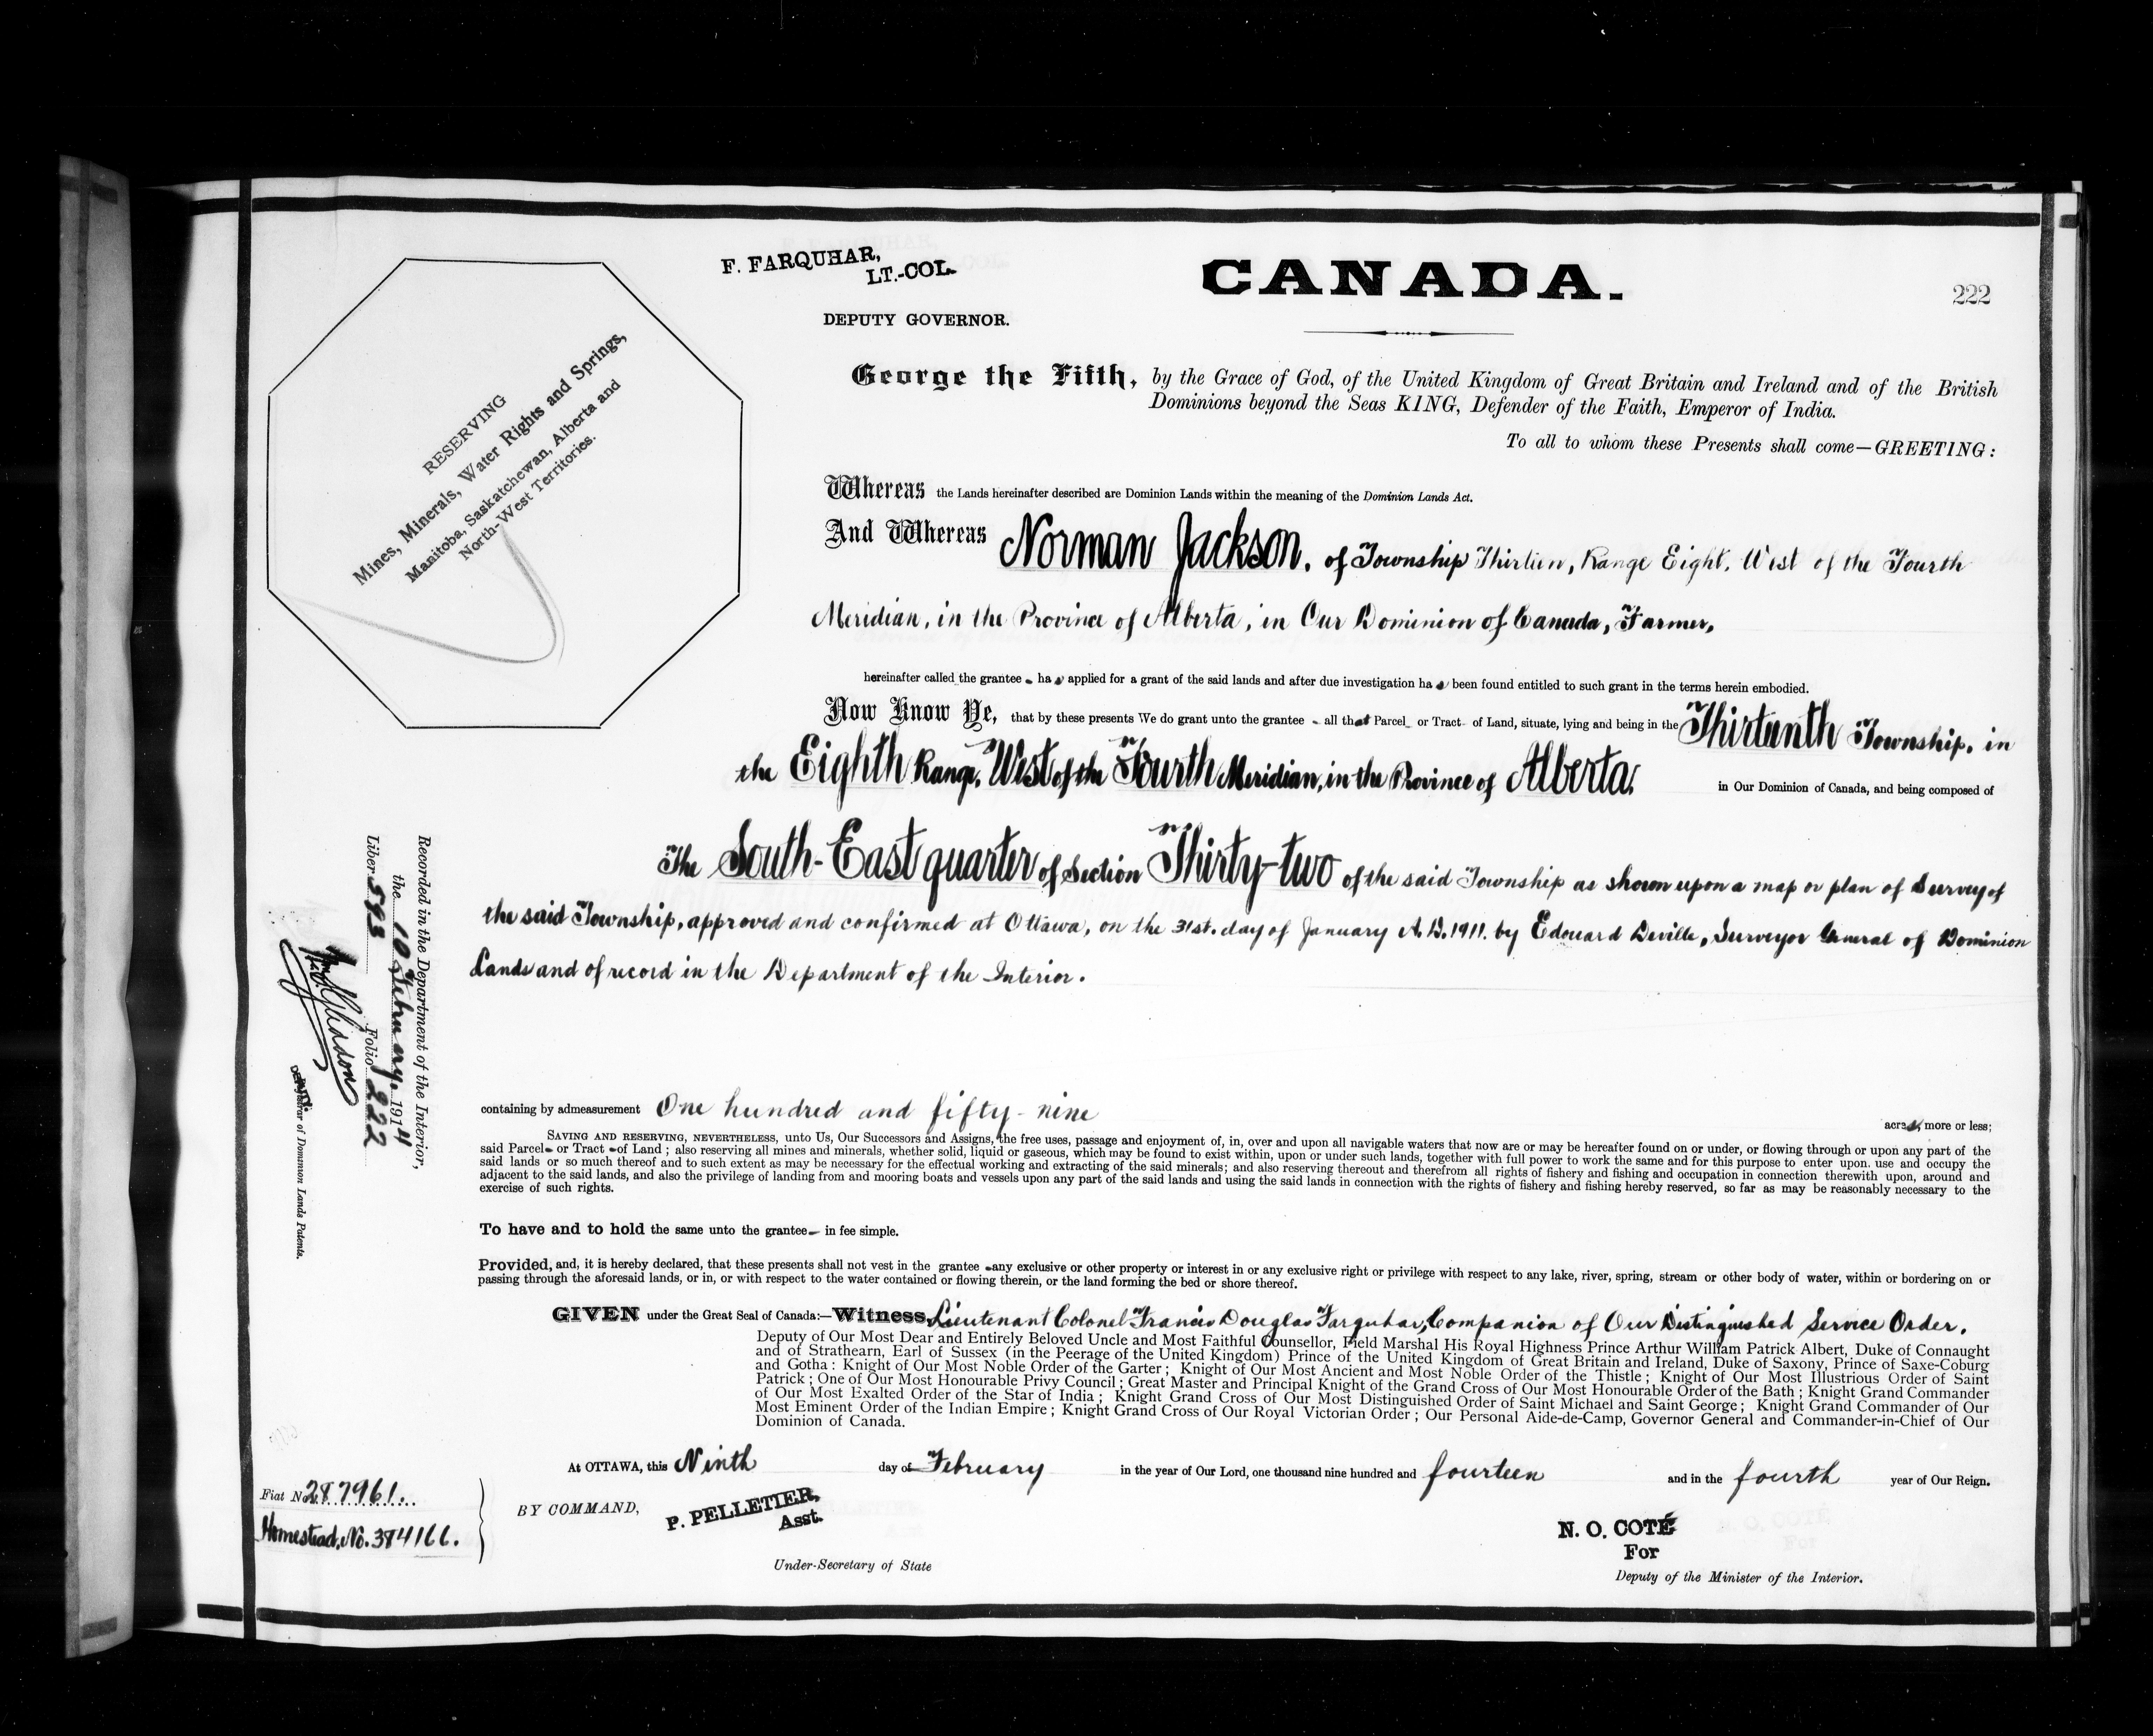 F. FARQUHAR,
LT.-COL.
DEPUTY GOVERNOR.
CANADA.
222
RESERVING
Mines, Minerals, Water Rights and Springs,
Manitoba, Saskatchewan, Alberta and
North-West Territories.
George the Fifth, by the Grace of God, of the United Kingdom of Great Britain and Ireland and of the British
Dominions beyond the Seas KING, Defender of the Faith, Emperor of India.
To all to whom these Presents shall come—GREETING:
Whereas the Lands hereinafter described are Dominion Lands within the meaning of the Dominion Lands Act.
And Whereas Norman Jackson, of Township Thirteen, Range Eight, West of the Fourth
Meridian, in the Province of Alberta, in Our Dominion of Canada, Farmer,
hereinafter called the grantee - has applied for a grant of the said lands and after due investigation has been found entitled to such grant in the terms herein embodied.
Now Know Ye, that by these presents We do grant unto the grantee - all that Parcel - or Tract - of Land, situate, lying and being in the Thirteenth Township, in
the Eighth Range, West of the Fourth Meridian, in the Province of Alberta, in Our Dominion of Canada, and being composed of
The South-East quarter of Section Thirty-two of the said Township as shown upon a map or plan of Survey of
the said Township, approved and confirmed at Ottawa, on the 31st. day of January A.D. 1911. by Edouard Deville, Surveyor General of Dominion
Lands and of record in the Department of the Interior.
containing by admeasurement One hundred and fifty-nine acres, more or less;
SAVING AND RESERVING, NEVERTHELESS, unto Us, Our Successors and Assigns, the free uses, passage and enjoyment of, in, over and upon all navigable waters that now are or may be hereafter found on or under, or flowing through or upon any part of the
said Parcel - or Tract - of Land; also reserving all mines and minerals, whether solid, liquid or gaseous, which may be found to exist within, upon or under such lands, together with full power to work the same and for this purpose to enter upon, use and occupy the
said lands or so much thereof and to such extent as may be necessary for the effectual working and extracting of the said minerals; and also reserving thereout and therefrom all rights of fishery and fishing and occupation in connection therewith upon, around and
adjacent to the said lands, and also the privilege of landing from and mooring boats and vessels upon any part of the said lands and using the said lands in connection with the rights of fishery and fishing hereby reserved, so far as may be reasonably necessary to the
exercise of such rights.
To have and to hold the same unto the grantee - in fee simple.
Provided, and, it is hereby declared, that these presents shall not vest in the grantee - any exclusive or other property or interest in or any exclusive right or privilege with respect to any lake, river, spring, stream or other body of water, within or bordering on or
passing through the aforesaid lands, or in, or with respect to the water contained or flowing therein, or the land forming the bed or shore thereof.
GIVEN under the Great Seal of Canada:—Witness, Lieutenant Colonel Francis Douglas Farquhar, Companion of Our Distinguished Service Order,
Deputy of Our Most Dear and Entirely Beloved Uncle and Most Faithful Counsellor, Field Marshal His Royal Highness Prince Arthur William Patrick Albert, Duke of Connaught
and of Strathearn, Earl of Sussex (in the Peerage of the United Kingdom) Prince of the United Kingdom of Great Britain and Ireland, Duke of Saxony, Prince of Saxe-Coburg
and Gotha: Knight of Our Most Noble Order of the Garter; Knight of Our Most Ancient and Most Noble Order of the Thistle; Knight of Our Most Illustrious Order of Saint
Patrick; One of Our Most Honourable Privy Council; Great Master and Principal Knight of the Grand Cross of Our Most Honourable Order of the Bath; Knight Grand Commander
of Our Most Exalted Order of the Star of India; Knight Grand Cross of Our Most Distinguished Order of Saint Michael and Saint George; Knight Grand Commander of Our
Most Eminent Order of the Indian Empire; Knight Grand Cross of Our Royal Victorian Order; Our Personal Aide-de-Camp, Governor General and Commander-in-Chief of Our
Dominion of Canada.
At OTTAWA, this Ninth day of February in the year of Our Lord, one thousand nine hundred and fourteen and in the fourth year of Our Reign.
BY COMMAND,
P. PELLETIER,
Asst.
Under-Secretary of State
N. O. COTÉ
For
Deputy of the Minister of the Interior.
Fiat No. 287961.
Homestead, No. 384166.
Recorded in the Department of the Interior,
the 10 February, 1914
Liber 593 Folio 222
Registrar of Dominion Lands Patents.